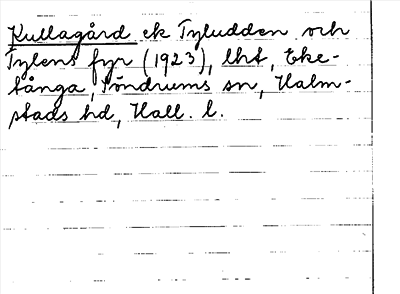 Kullagård ek Tyludden och
Tylens fyr (1923), lht, Eke-
tånga, Söndrums sn, Halm-
stads hd, Hall. l.